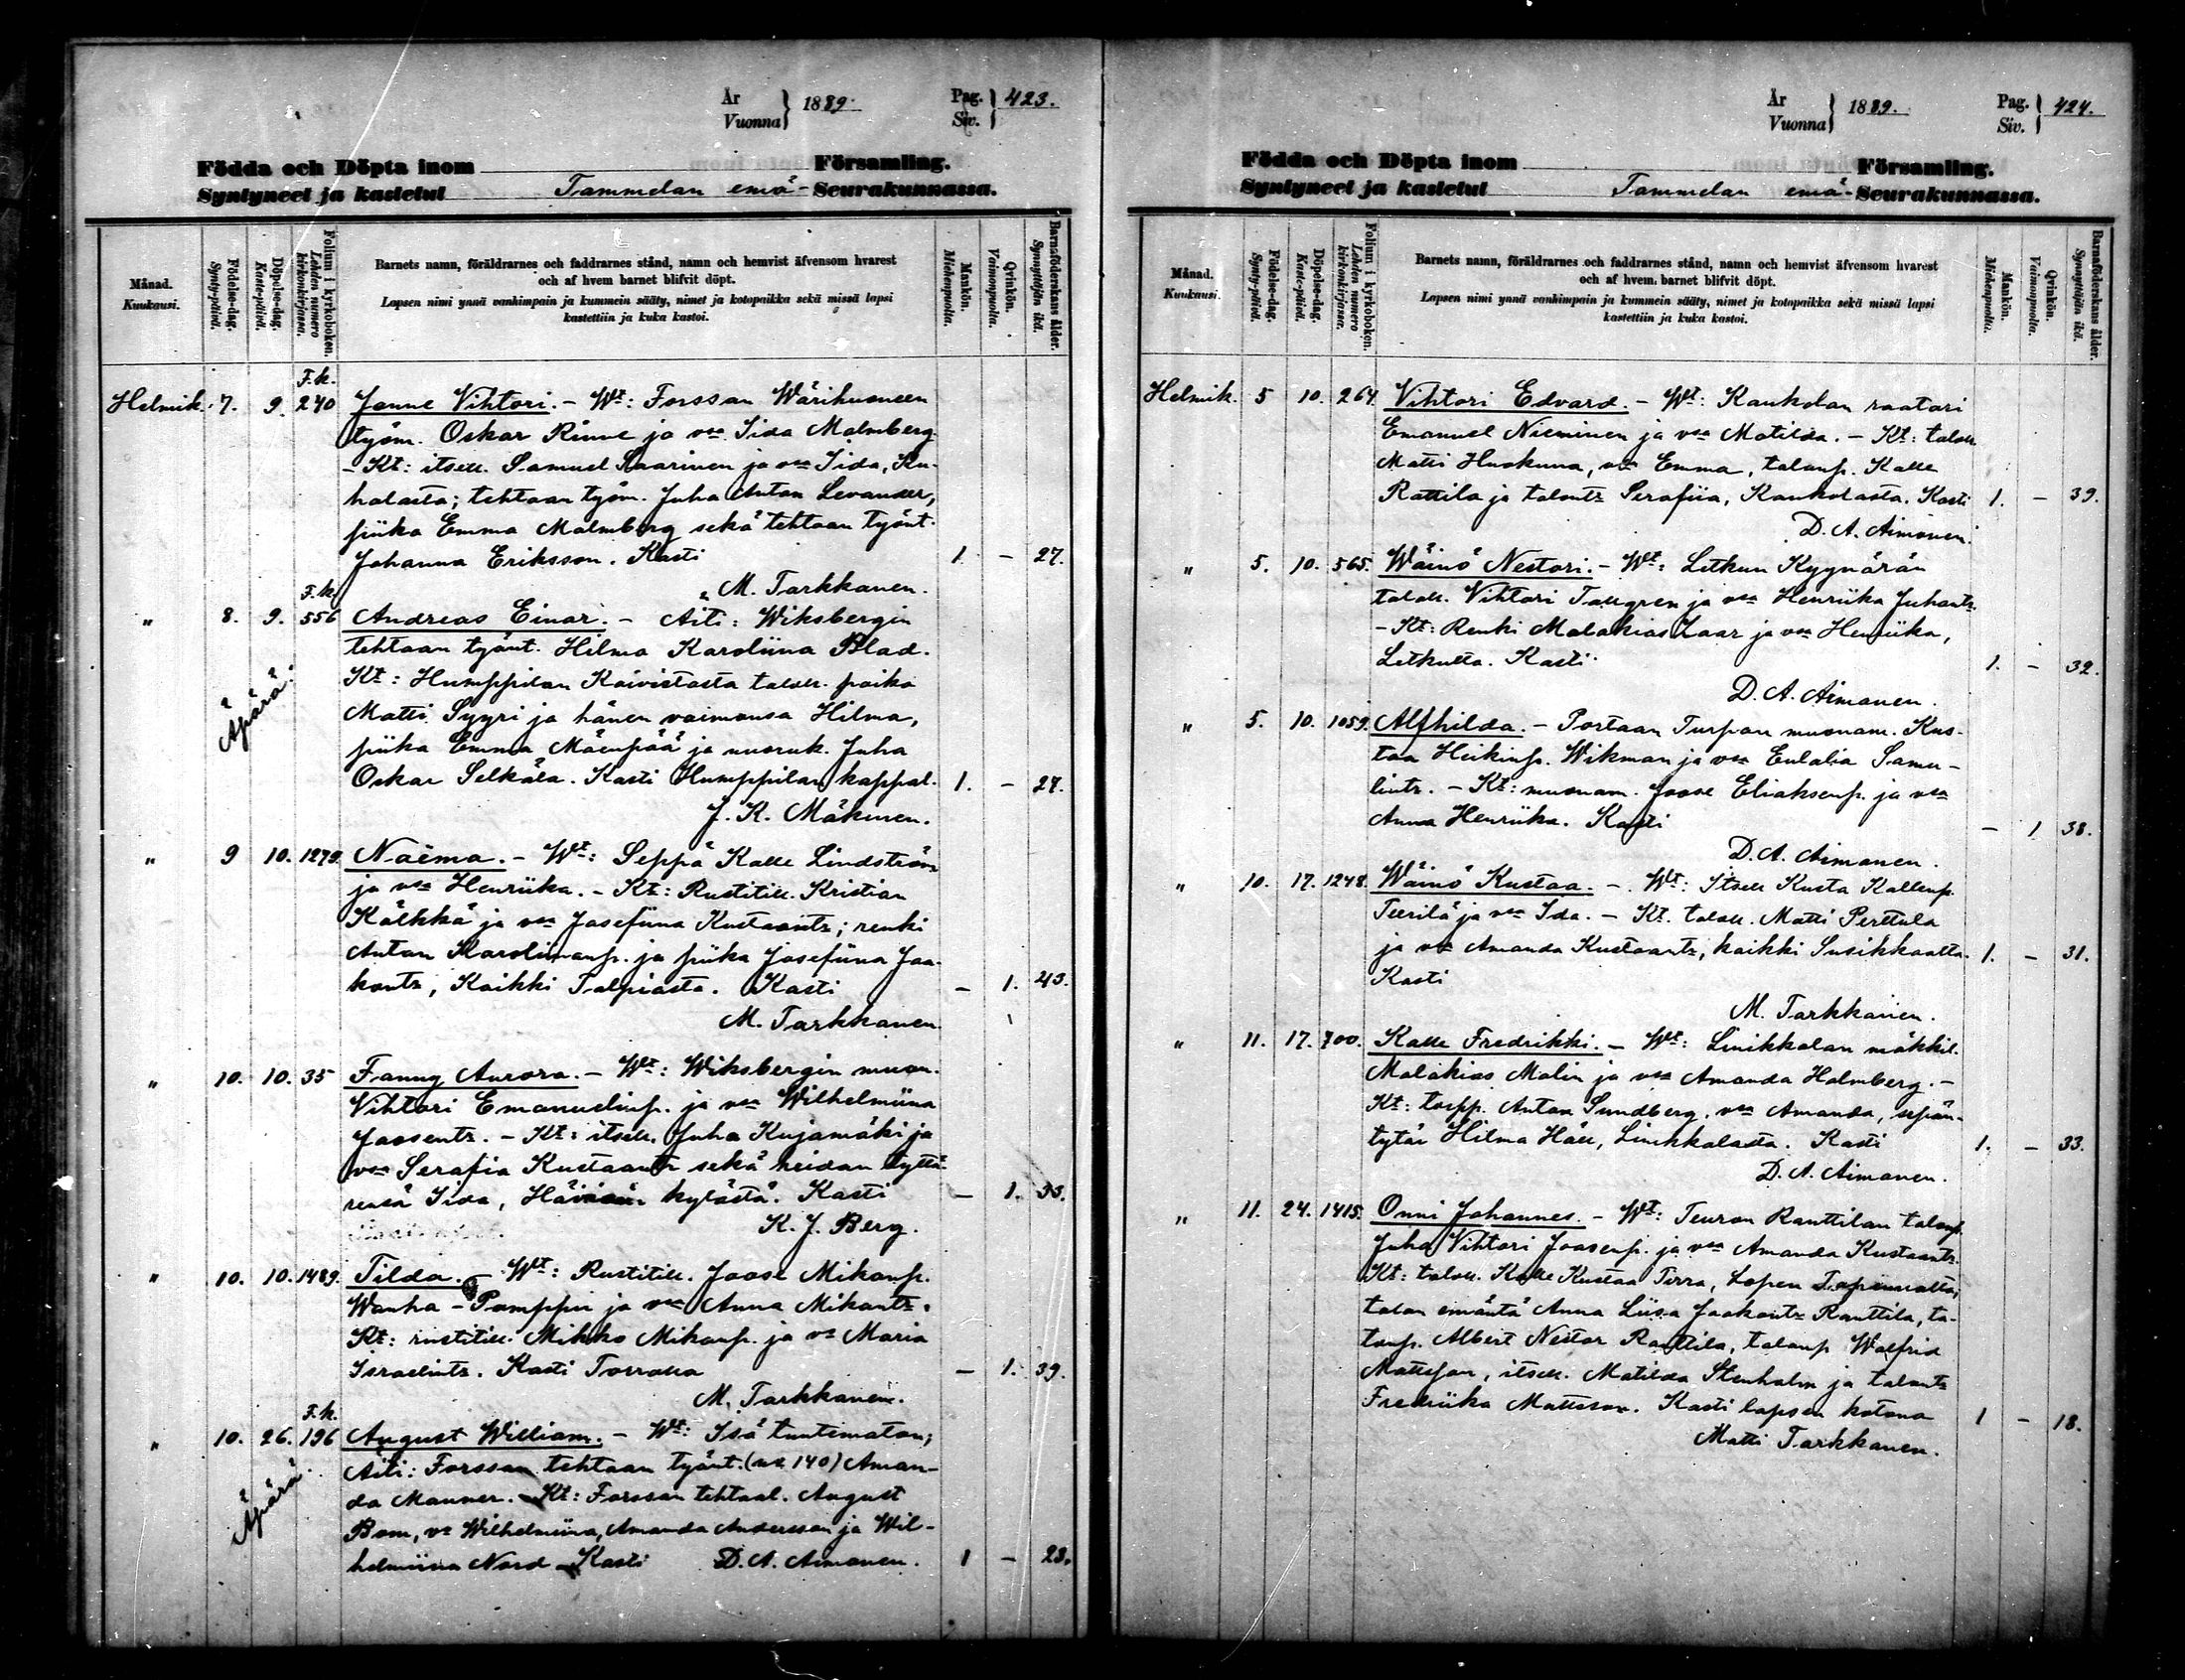 År
Vuonna } 1889.
Pag.
Siv. } 423.
Födda och Döpta inom Församling.
Syntyneet ja kastetut Tammelan emä- Seurakunnassa.
Månad.
Kuukausi.
Födelse-dag.
Synty-päivä.
Döpelse-dag.
Kaste-päivä.
Folium i kyrkoboken.
Lehden numero
kirkonkirjassa.
Barnets namn, föräldrarnes och faddrarnes stånd, namn och hemvist äfvensom hvarest
och af hvem barnet blifvit döpt.
Lapsen nimi ynnä vanhimpain ja kummein sääty, nimet ja kotopaikka sekä missä lapsi
kastettiin ja kuka kastoi.
Mankön.
Miehenpuolta.
Qvinkön.
Vaimonpuolta.
Barnaföderskans ålder.
Synnyttäjän ikä.
F.k.
Helmik. 7. 9. 240 Janne Vihtori. – Wt: Forssan Wärihuoneen
työm. Oskar Rinne ja vaa Iida Malmberg.
– Kt: itsell. Samuel Saarinen ja vaa Iida, Ku-
halasta; tehtaan työm. Juha Anton Levander,
piika Emma Malmberg sekä tehtaan työnt.
Johanna Eriksson. Kasti 1 – 27.
M. Tarkkanen.
F.k.
" 8. 9. 556 Andreas Einar. – Äiti: Wiksbergin
tehtaan työnt. Hilma Karoliina Blad.
Äpärä.
Kt: Humppilan Koivistosta taloll. poika
Matti Syyri ja hänen vaimonsa Hilma,
piika Emma Mäenpää ja nuoruk. Juha
Oskar Selkälä. Kasti Humppilan kappal. 1. – 27.
J. K. Mäkinen.
" 9 10. 1279. Naëma. – Wt: Seppä Kalle Lindström
ja vaa Henriika. – Kt: Rustitill. Kristian
Kälkkä ja vaa Josefiina Kustaantr; renki
Anton Karolinanp. ja piika Josefiina Jaa-
kontr, Kaikki Talpiasta. Kasti – 1. 43.
M. Tarkkanen.
" 10. 10. 35 Fanny Aurora. – Wt: Wiksbergin muon.
Vihtori Emanuelinp. ja vaa Wilhelmiina
Joosentr. – Kt: itsell. Juha Kujamäki ja
vaa Serafia Kustaantr sekä heidän tyttä-
rensä Iida, kylästä. Kasti – 1. 33.
K. J. Berg.
" 10. 10. 1489. Tilda. – Wt: Rustitill. Joose Mikonp.
Wanha-Pamppu ja vaa Anna Mikontr.
Kt: rustitill. Mikko Mikonp. ja va Maria
Israelintr. Kasti Torrolla – 1. 39.
M. Tarkkanen.
F.k.
" 10. 26. 196 August William. – Wt: Isä tuntematon;
Äpärä.
Äiti: Forssan tehtaan työnt. (No 140) Aman-
da Manner. – Kt: Forssan tehtaal. August
Bom, va Wilhelmiina, Amanda Andersson ja Wil-
helmiina Nord – Kasti D. A. Aimonen. 1 – 23.
År
Vuonna } 1889.
Pag.
Siv. } 424.
Födda och Döpta inom Församling.
Syntyneet ja kastetut Tammelan emä- Seurakunnassa.
Månad.
Kuukausi.
Födelse-dag.
Synty-päivä.
Döpelse-dag.
Kaste-päivä.
Folium i kyrkoboken.
Lehden numero
kirkonkirjassa.
Barnets namn, föräldrarnes och faddrarnes stånd, namn och hemvist äfvensom hvarest
och af hvem barnet blifvit döpt.
Lapsen nimi ynnä vanhimpain ja kummein sääty, nimet ja kotopaikka sekä missä lapsi
kastettiin ja kuka kastoi.
Mankön.
Miehenpuolta.
Qvinkön.
Vaimonpuolta.
Barnaföderskans ålder.
Synnyttäjän ikä.
Helmik. 5 10. 264. Vihtori Edvard. – Wt: Kaukolan raatari
Emanuel Nieminen ja vaa Matilda. – Kt: taloll.
Matti Huokuna, va Emma, talonp. Kalle
Rattila ja talontr Serafiia, Kaukolasta. Kasti 1. – 39.
D. A. Aimonen.
" 5. 10. 565. Wäinö Nestori. – Wt: Letkun Kyynärän
taloll. Vihtori Tallgren ja vaa Henriika Juhantr.
– Kt: Renki Malakias Laar ja vaa Henriika,
Letkulta. Kasti. 1. – 32.
D. A. Aimonen.
" 5. 10. 1059. Alfhilda. – Portaan Turpan muonam. Kus-
taa Heikinp. Wikman ja vaa Eulalia Samu-
lintr. – Kt: muonam. Joose Eliaksenp. ja vaa
Anna Henriika. Kasti – 1 38.
D. A. Aimonen.
" 10. 17. 1248. Wäinö Kustaa. – Wt: Itsell Kusta Kallenp.
Teerilä ja vaa Ida. – Kt. taloll. Matti Perttula
ja va Amanda Kustaantr, kaikki Susikkaalta. 1. – 31.
Kasti
M. Tarkkanen.
" 11. 17. 700. Kalle Fredrikki. – Wt: Linikkalan mökkil.
Malakias Malin ja vaa Amanda Holmberg. –
Kt: torpp. Anton Sundberg, vaa Amanda, sepän-
tytär Hilma Häll, Linikkalasta. Kasti 1. – 33.
D. A. Aimonen.
" 11. 24. 1415. Onni Johannes. – Wt: Teuron Ranttilan talonp.
Juha Vihtori Joosenp. ja vaa Amanda Kustaantr.
Kt: taloll. Kalle Kustaa Tirra, Lopen
talon emäntä Anna Liisa Jaakontr Ranttila, ta-
lonp. Albert Nestor Ranttila, talonp Walfrid
Mattsson, itsell. Matilda Stenholm ja talontr
Fredriika Mattsson. Kasti lapsen kotona 1 – 18.
Matti Tarkkanen.